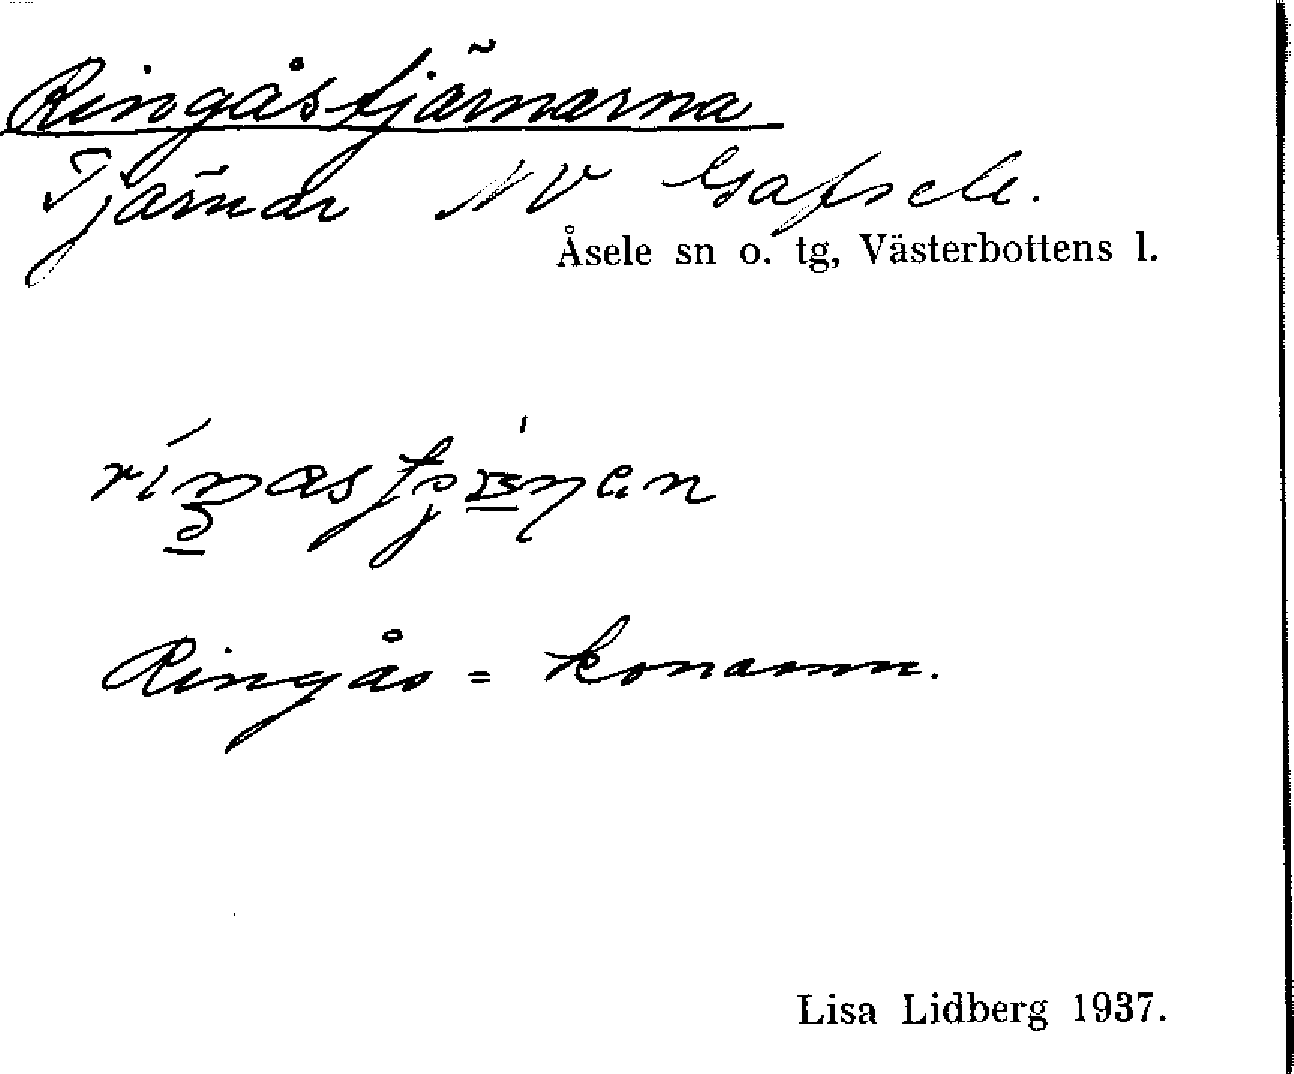 Ringåstjärnarna
Tjärnar NV Gafsele.
Åsele sn o. tg, Västerbottens l.
Ringås = konamn.
Lisa Lidberg 1937.